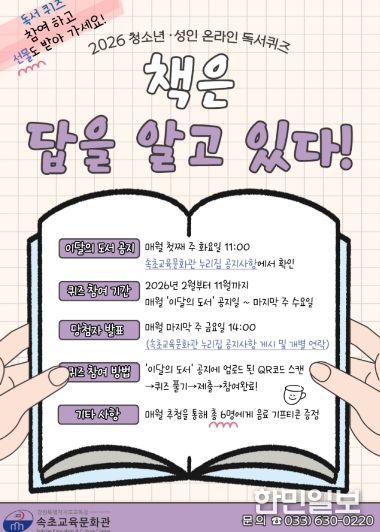 독서 퀴즈
참여 하고
선물도 받아 가세요!
2026 청소년·성인 온라인 독서퀴즈
책은
답을 알고 있다!
이달의 도서 공지 매월 첫째 주 화요일 11:00
속초교육문화관 누리집 공지사항에서 확인
퀴즈 참여 기간 2026년 2월부터 11월까지
매월 '이달의 도서' 공지일 ~ 마지막 주 수요일
당첨자 발표 매월 마지막 주 금요일 14:00
(속초교육문화관 누리집 공지사항 게시 및 개별 연락)
퀴즈 참여 방법 '이달의 도서' 공지에 업로드 된 QR코드 스캔
→퀴즈 풀기→제출→참여완료!
기타 사항 매월 추첨을 통해 총 6명에게 음료 기프티콘 증정
강원특별자치도교육청
속초교육문화관
Sokcho Education & Culture Center
한민일보
문의 ☎ 033) 630-0220